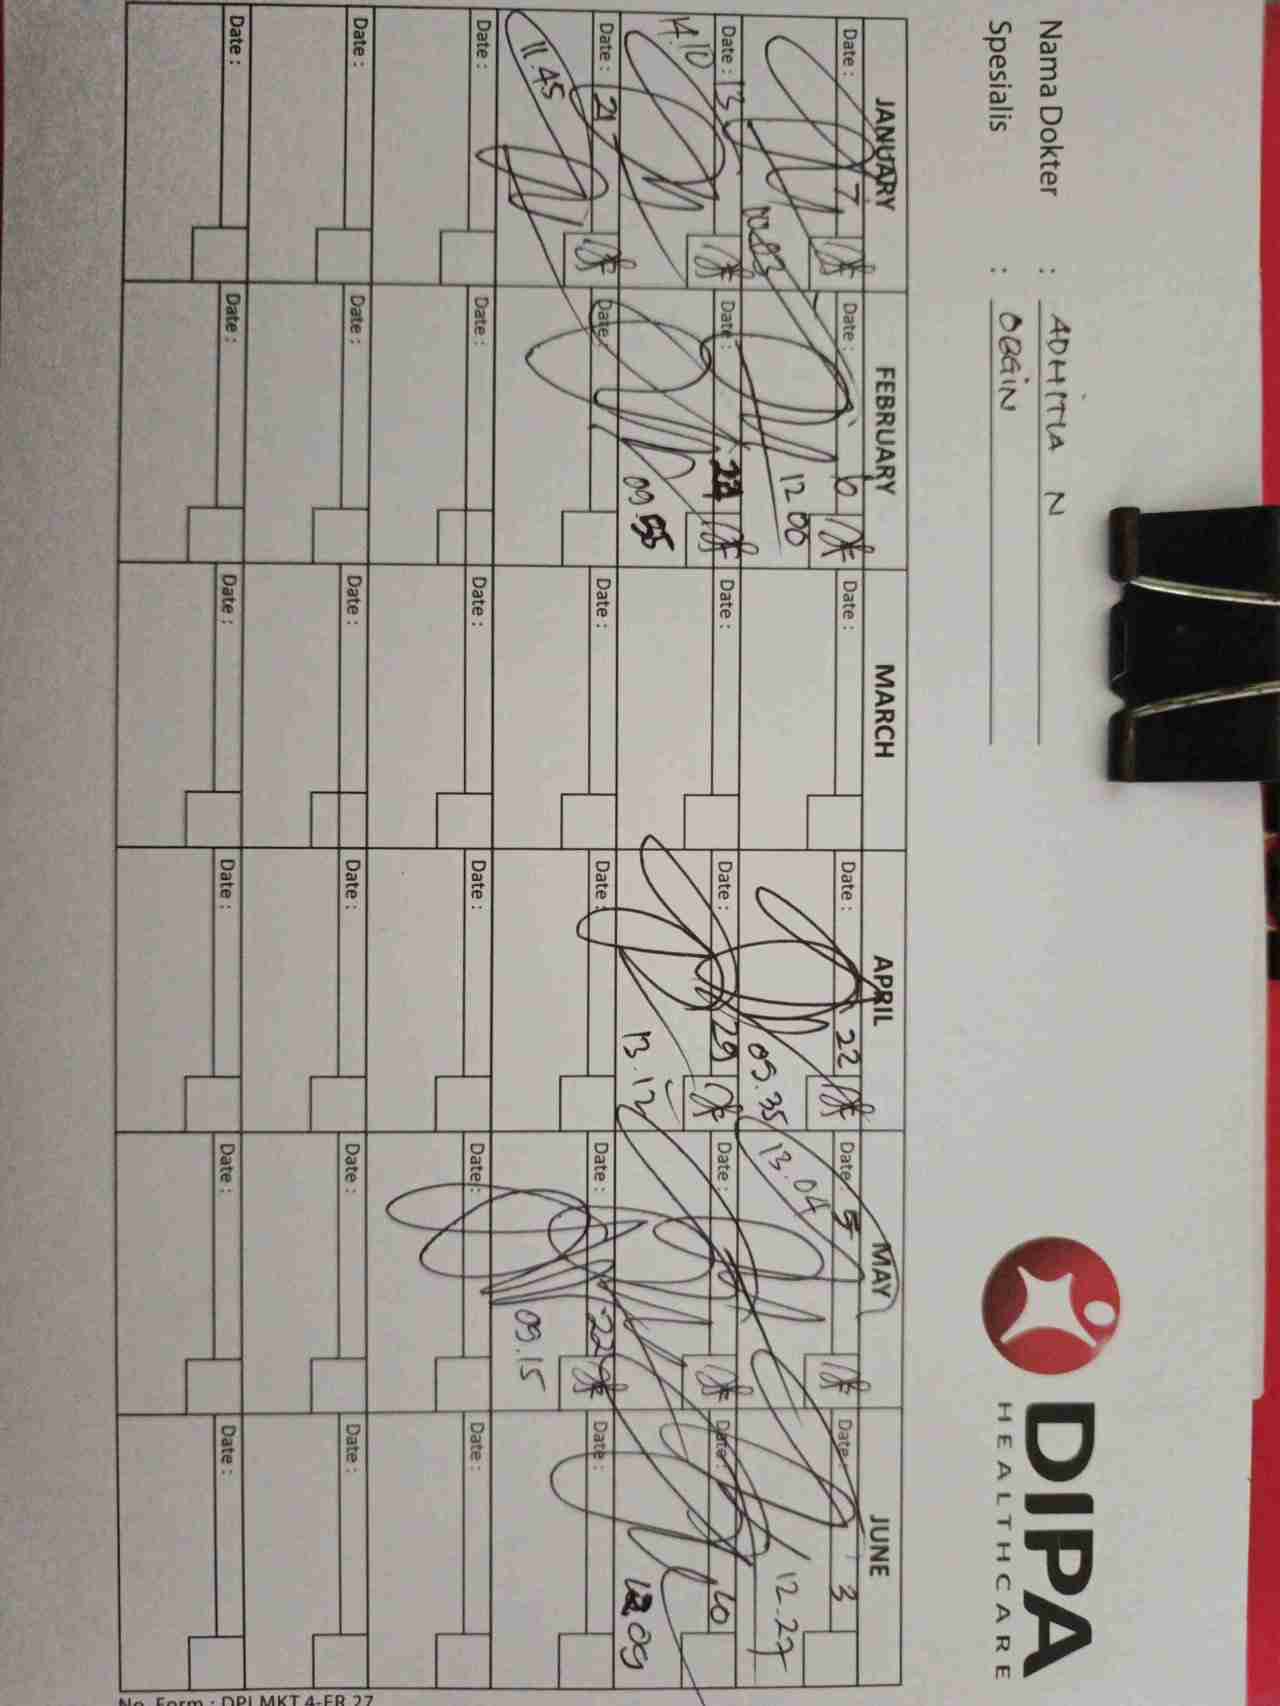 DIPA
HEALTHCARE
Nama Dokter : ADHITIA N
Spesialis : OBGIN
JANUARY FEBRUARY MARCH APRIL MAY JUNE
Date : 7 Date : 6 Date : Date : 22 Date : 5 Date : 3
12 00 09.35 13.04 12.27
Date : 13 Date : Date : Date : 29 Date : Date : 10
14.10 09 55 13.12 09
Date : 21 Date : Date : Date : Date : 22 Date :
11.45 09.15
Date : Date : Date : Date : Date : Date :
Date : Date : Date : Date : Date : Date :
Date : Date : Date : Date : Date : Date :
No. Form : DPI.MKT 4-FR 27